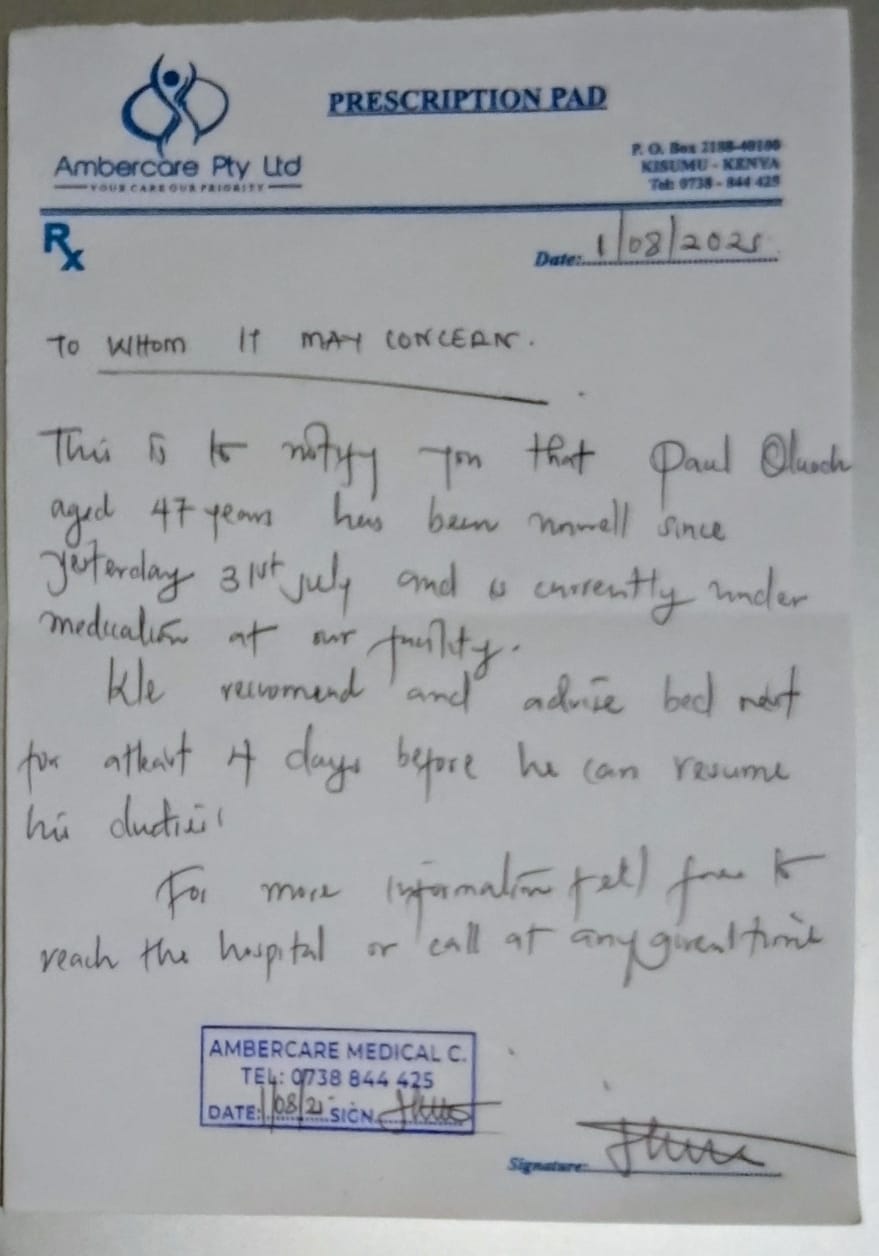 PRESCRIPTION PAD
Ambercare Pty Ltd
YOUR CARE OUR PRIORITY
P. O. Box 2188-40100
KISUMU - KENYA
Tel: 0738 - 844 425
Rx
Date: 1/08/2025
TO WHOM IT MAY CONCERN.
This is to notify you that Paul Oluoch
aged 47 years has been unwell since
yesterday 31st July and is currently under
medication at our facility.
We reccomend and advise bed rest
for atleast 4 days before he can resume
his duties
For more information feel free to
reach the hospital or call at any given time
AMBERCARE MEDICAL C.
TEL: 0738 844 425
DATE: 1/08/25 SIGN
Signature: